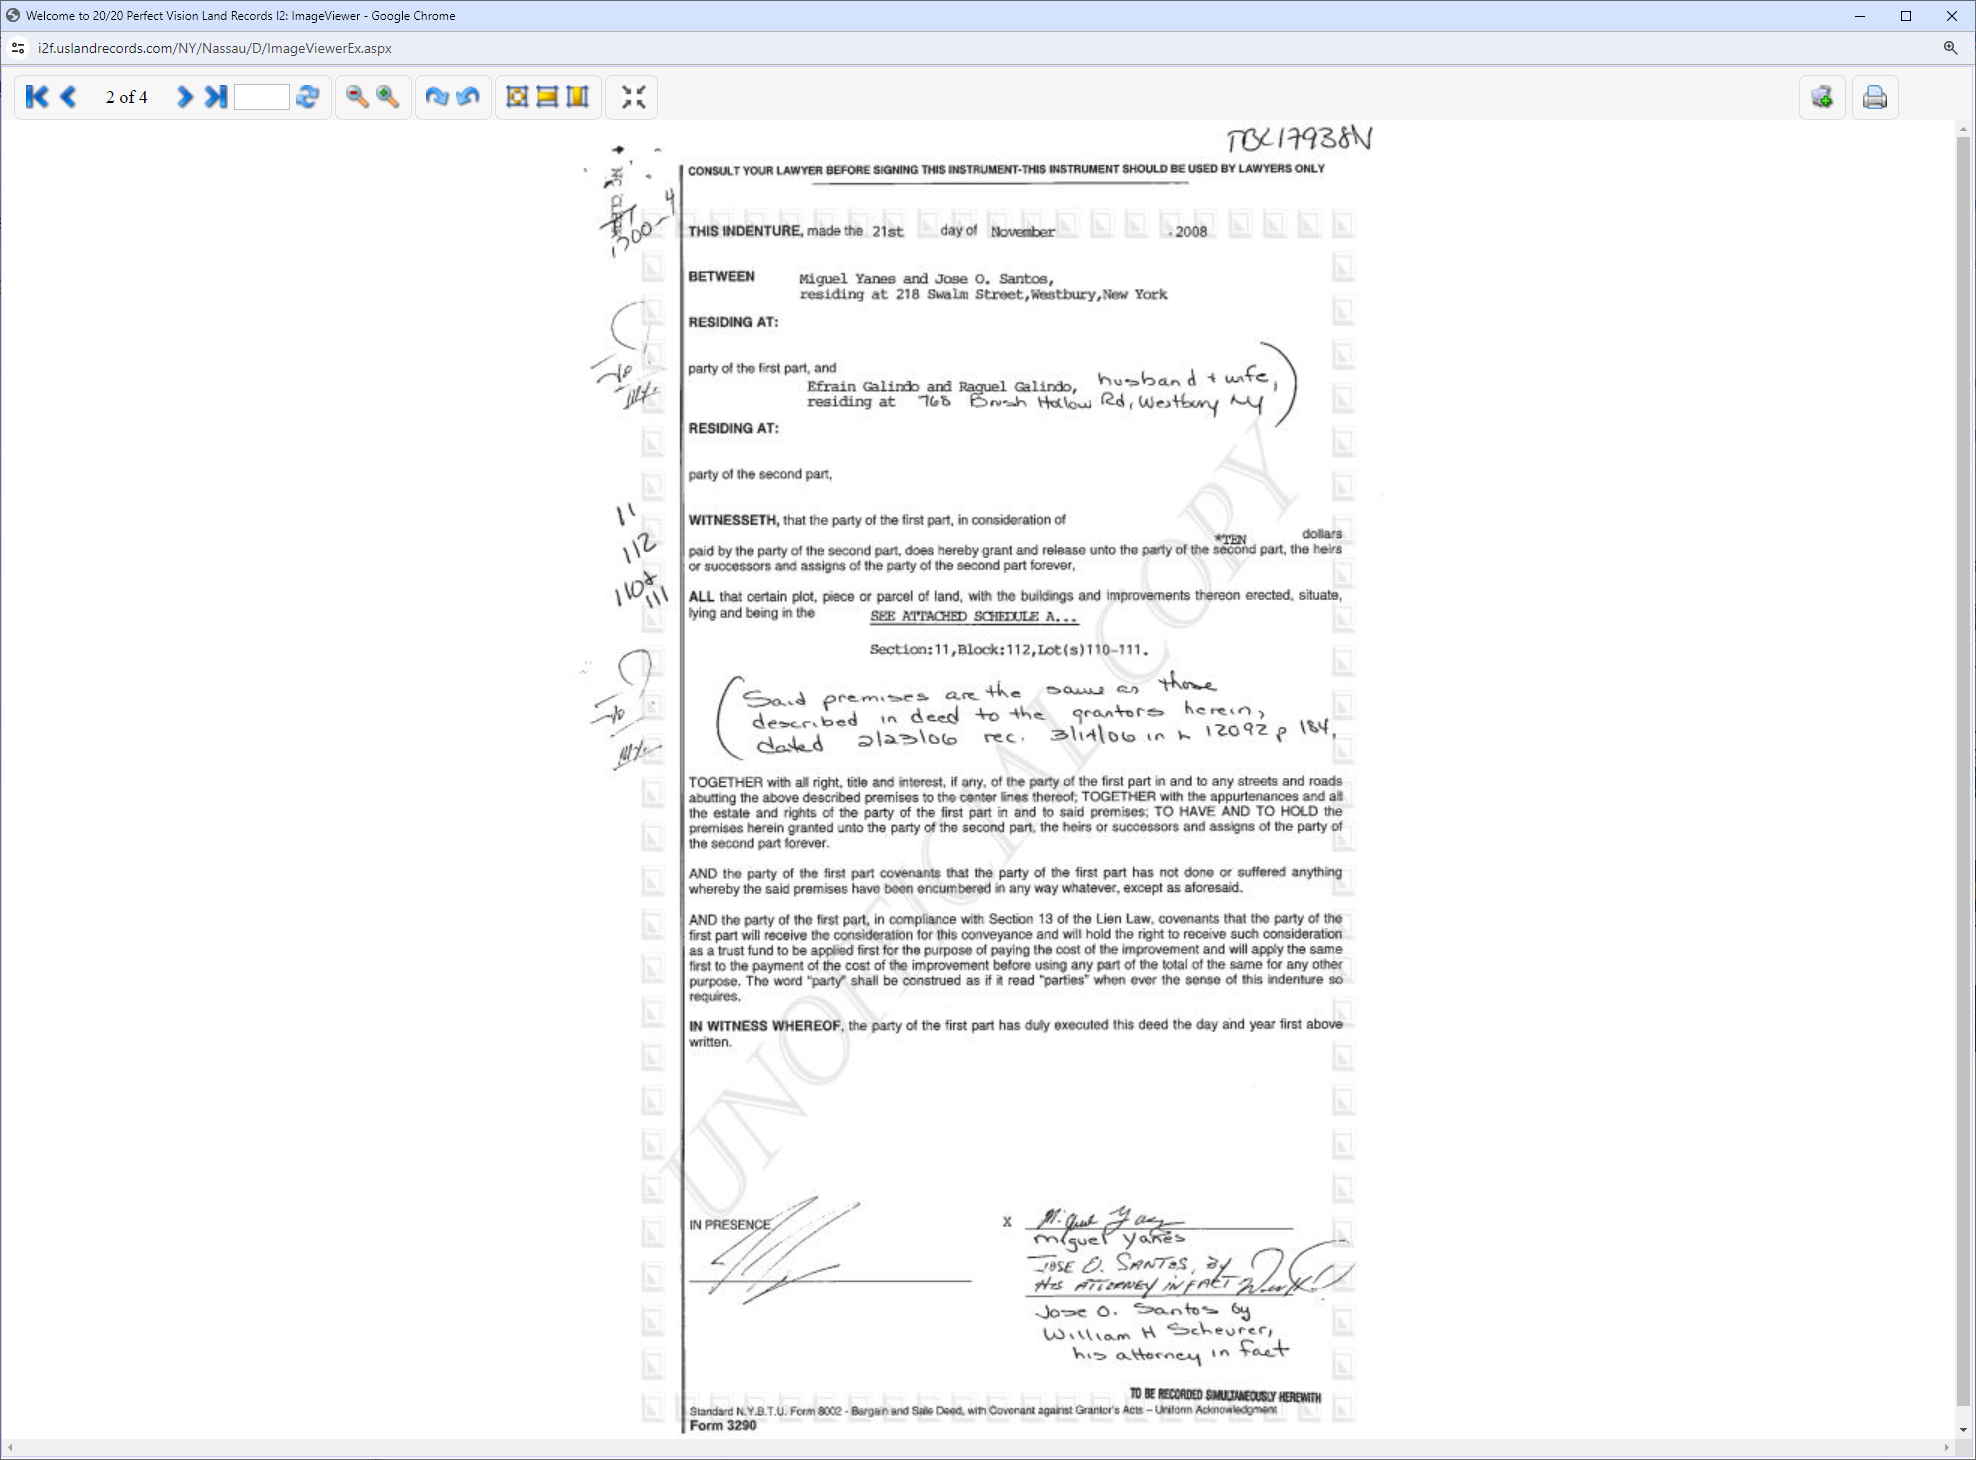 Welcome to 20/20 Perfect Vision Land Records I2: ImageViewer - Google Chrome
i2f.uslandrecords.com/NY/Nassau/D/ImageViewerEx.aspx
2 of 4
TBC17938N
CONSULT YOUR LAWYER BEFORE SIGNING THIS INSTRUMENT-THIS INSTRUMENT SHOULD BE USED BY LAWYERS ONLY
THIS INDENTURE, made the 21st day of November . 2008
BETWEEN Miguel Yanes and Jose O. Santos,
residing at 218 Swalm Street,Westbury,New York
RESIDING AT:
party of the first part, and
Efrain Galindo and Raquel Galindo, husband + wife,
residing at 768 Brush Hollow Rd, Westbury NY
RESIDING AT:
party of the second part,
11
112
110+
111
WITNESSETH, that the party of the first part, in consideration of
*TEN dollars
paid by the party of the second part, does hereby grant and release unto the party of the second part, the heirs
or successors and assigns of the party of the second part forever,
ALL that certain plot, piece or parcel of land, with the buildings and improvements thereon erected, situate,
lying and being in the SEE ATTACHED SCHEDULE A...
Section:11,Block:112,Lot(s)110-111.
Said premises are the same as those
described in deed to the grantors herein,
dated 2/23/06 rec. 3/14/06 in L 12092 p 184.
TOGETHER with all right, title and interest, if any, of the party of the first part in and to any streets and roads
abutting the above described premises to the center lines thereof; TOGETHER with the appurtenances and all
the estate and rights of the party of the first part in and to said premises; TO HAVE AND TO HOLD the
premises herein granted unto the party of the second part, the heirs or successors and assigns of the party of
the second part forever.
AND the party of the first part covenants that the party of the first part has not done or suffered anything
whereby the said premises have been encumbered in any way whatever, except as aforesaid.
AND the party of the first part, in compliance with Section 13 of the Lien Law, covenants that the party of the
first part will receive the consideration for this conveyance and will hold the right to receive such consideration
as a trust fund to be applied first for the purpose of paying the cost of the improvement and will apply the same
first to the payment of the cost of the improvement before using any part of the total of the same for any other
purpose. The word "party" shall be construed as if it read "parties" when ever the sense of this indenture so
requires.
IN WITNESS WHEREOF, the party of the first part has duly executed this deed the day and year first above
written.
UNOFFICIAL COPY
IN PRESENCE
X Miguel Yanes
Miguel Yanes
JOSE O. SANTOS, BY
HIS ATTORNEY IN FACT
Jose O. Santos by
William H Scheurer,
his attorney in fact
TO BE RECORDED SIMULTANEOUSLY HEREWITH
Standard N.Y.B.T.U. Form 8002 - Bargain and Sale Deed, with Covenant against Grantor's Acts – Uniform Acknowledgment
Form 3290